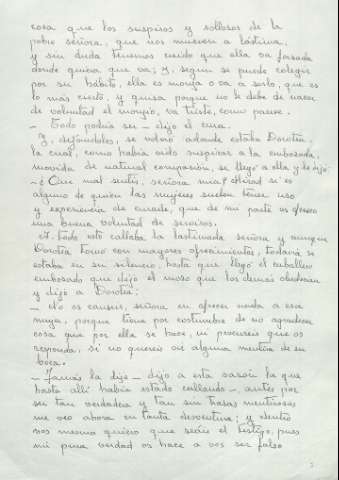 cosa que los suspiros y sollozos de la
pobre señora, que nos mueven a lástima,
y sin duda tenemos creído que ella va forzada
donde quiera que va; y, según se puede colegir
por su hábito, ella es monja o va a serlo, que es
lo más cierto, y quizá porque no le debe de nacer
de voluntad el monjío, va triste, como parece.
- Todo podría ser - dijo el cura.
Y, dejándoles, se volvió adonde estaba Dorotea,
la cual, como había oído suspirar a la embozada,
movida de natural compasión, se llegó a ella y le dijo:
- ¿Qué mal sentís, señora mía? Mirad si es
alguno de quien las mujeres suelen tener uso
y experiencia de curarle, que de mi parte os ofrezco
una buena voluntad de serviros.
A todo esto callaba la lastimada señora y aunque
Dorotea tornó con mayores ofrecimientos, todavía se
estaba en su silencio, hasta que llegó el caballero
embozado que dijo el mozo que los demás obedecían
y dijo a Dorotea:
- No os canséis, señora en ofrecer nada a esa
mujer, porque tiene por costumbre de no agradecer
cosa que por ella se hace, ni procuréis que os
responda, si no queréis oír alguna mentira de su
boca.
- Jamás la dije - dijo a esta sazón la que
hasta allí había estado callando -, antes por
ser tan verdadera y tan sin trazas mentirosas
me veo ahora en tanta desventura; y desto
vos mesmo quiero que seáis el testigo, pues
mi pura verdad os hace a vos ser falso